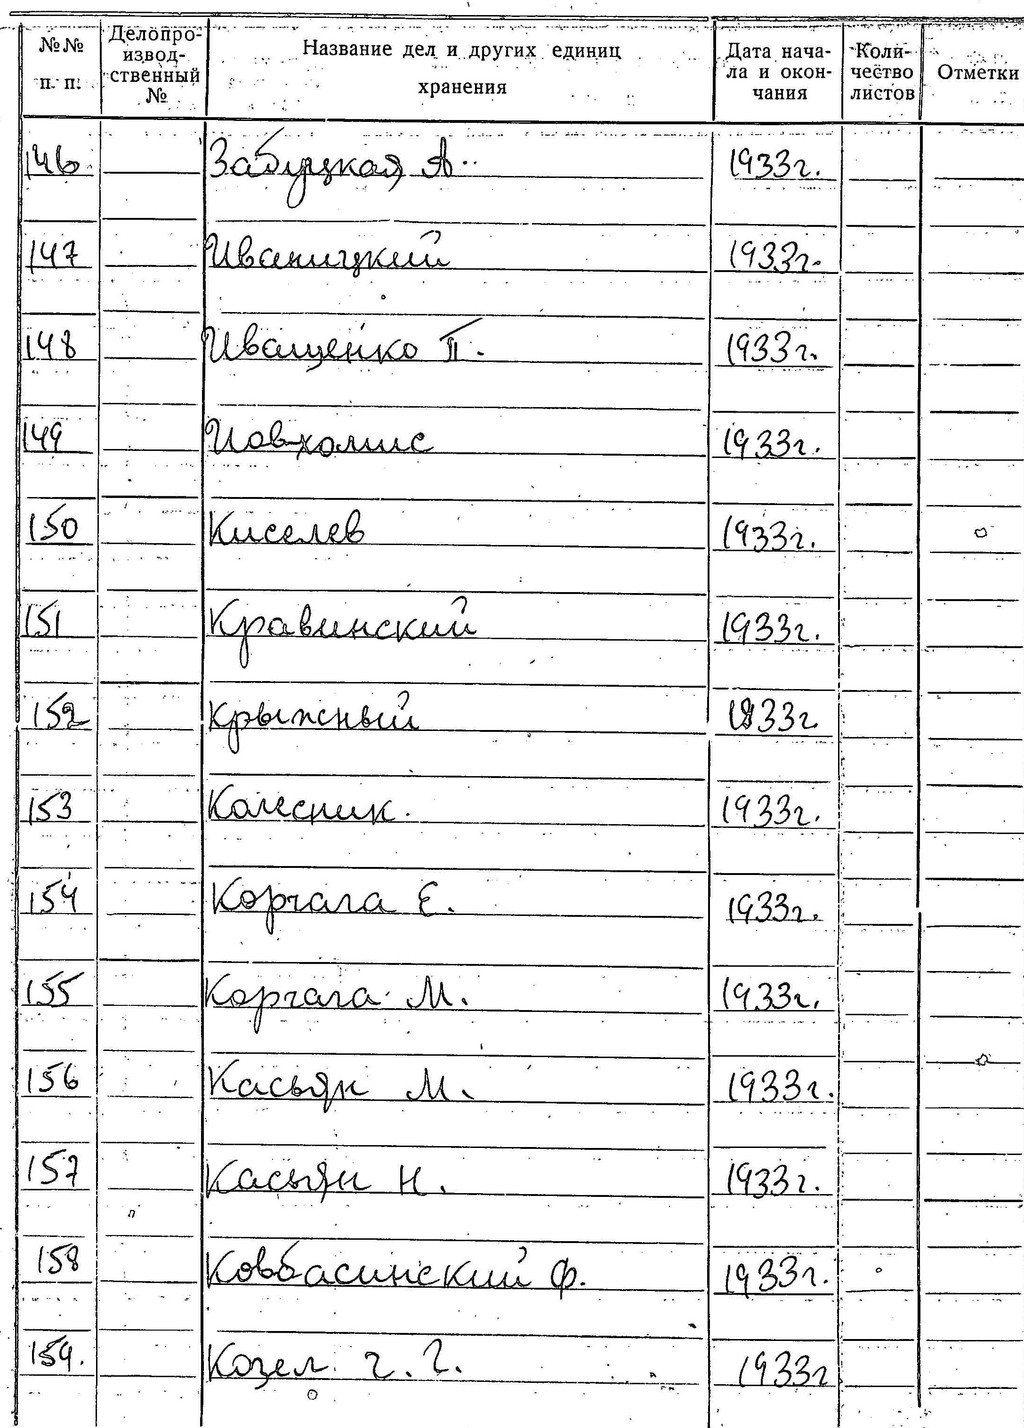 №№ п. п. Делопроизводственный № Название дел и других единиц хранения Дата начала и окончания Количество листов Отметки
146. Забуцкая А. 1933г.
147 Иваницкий 1933г.
148 Иващенко П. 1933г.
149 1933г.
150 Киселев 1933г.
151 Кравинский 1933г.
152 Крыжный 1933г
153 Колесник. 1933г.
154 Корчага Е. 1933г.
155 Корчага М. 1933г.
156 Касьян М. 1933г.
157 Касьян Н. 1933г.
158 Ковбасинский Ф. 1933г.
159. Козел Г. Г. 1933г